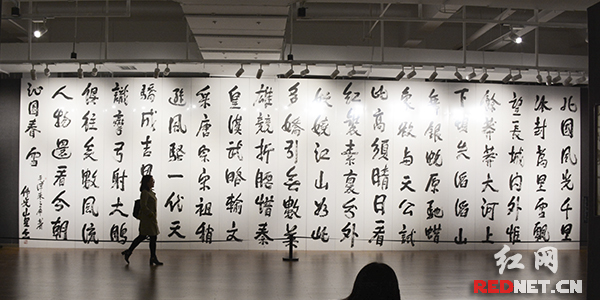 北國風光千里
冰封萬里雪飄
望長城内外惟
餘莽莽大河上
下頓失滔滔山
舞銀蛇原馳蠟
象欲与天公試
比高須晴日看
紅裝素裹分外
妖嬈江山如此
多嬌引無數英
雄競折腰惜秦
皇漢武略輸文
采唐宗宋祖稍
遜風騷一代天
驕成吉
識彎弓射大鵰
俱往矣數風流
人物還看今朝
沁園春雪
红网
www.rednet.cn
红网
REDNET.CN